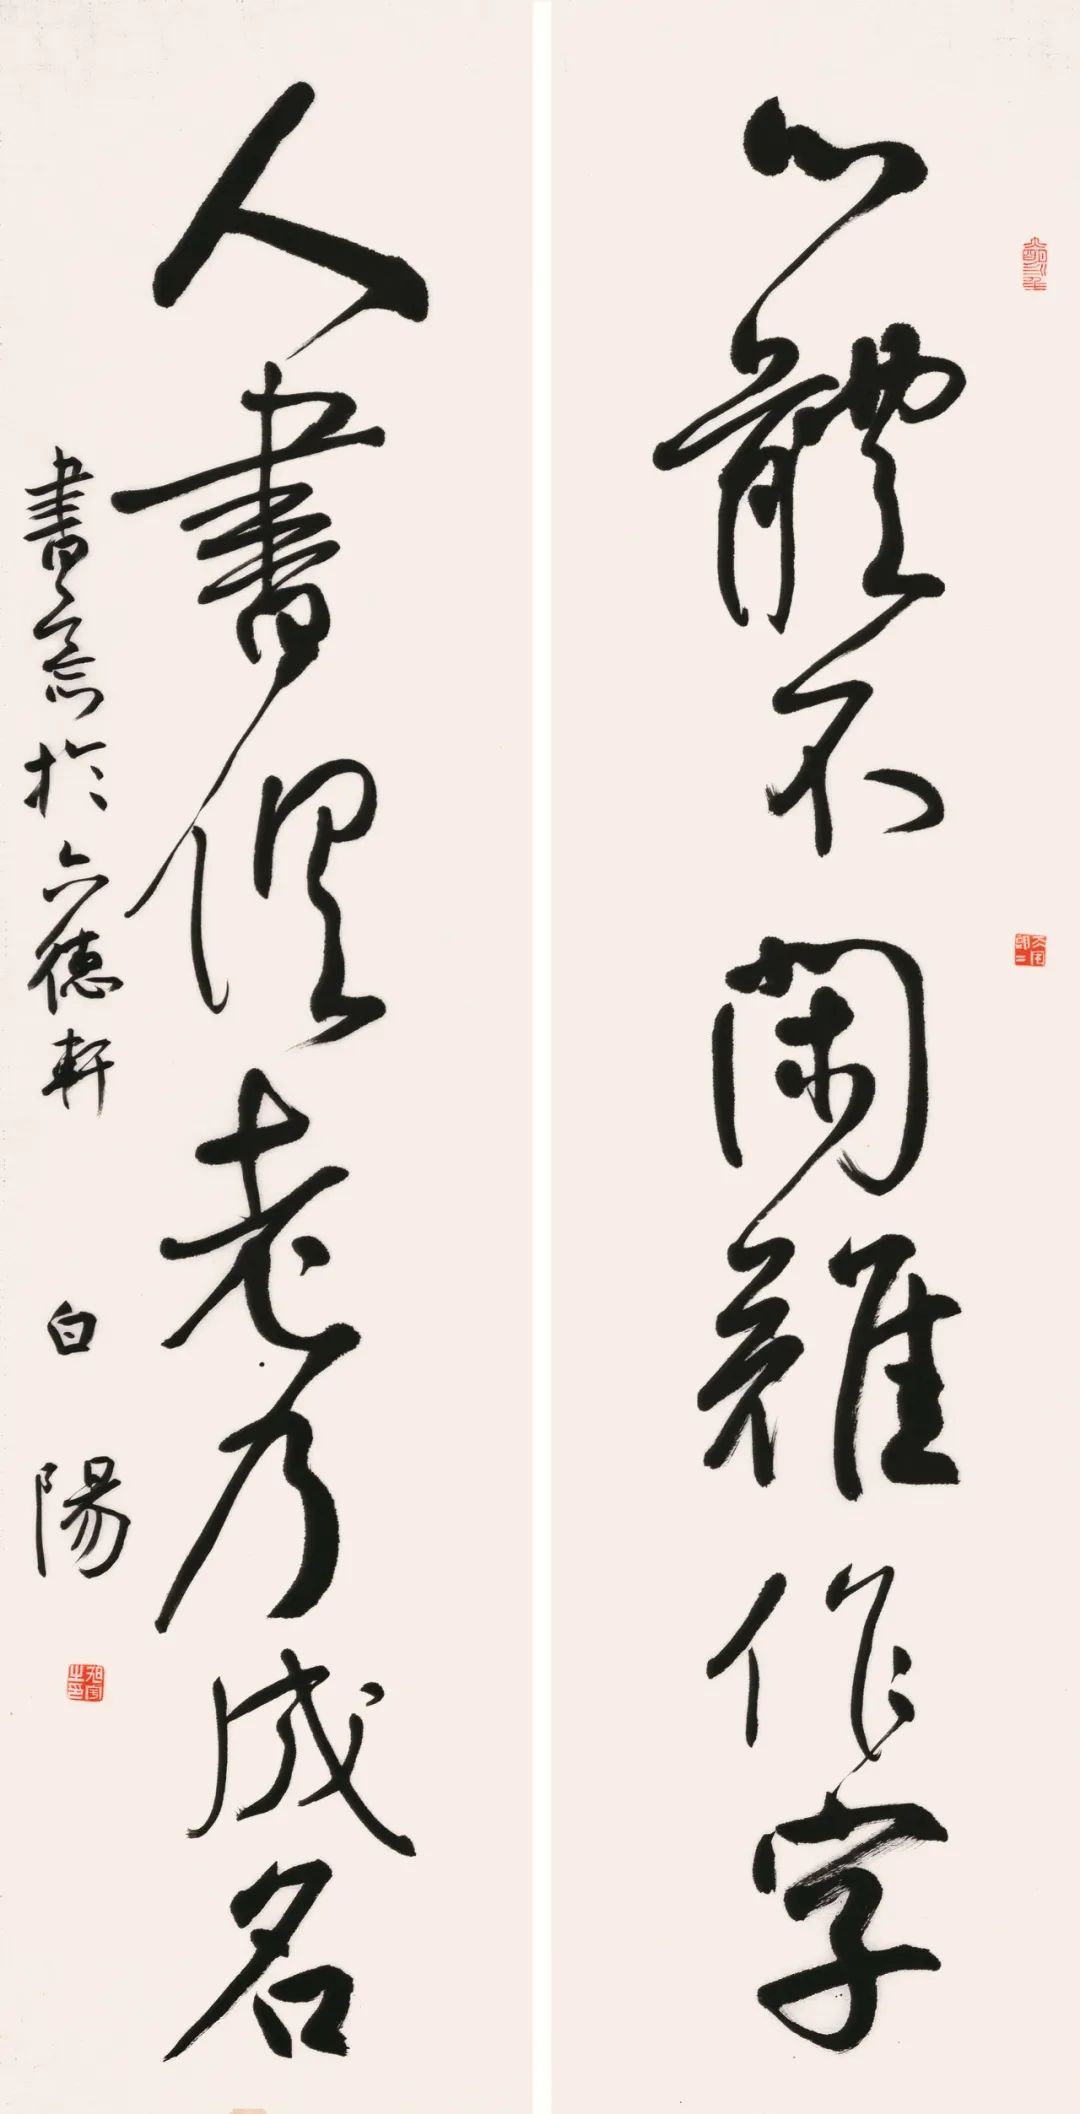 心體不閑難作字
人書俱老乃成名
書意於六德軒 白陽